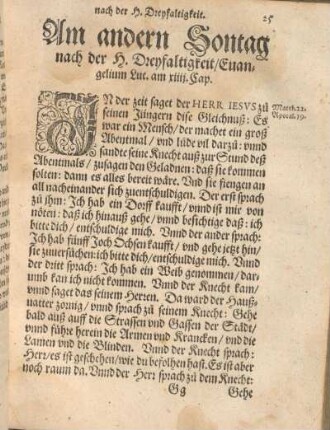 nach der H. Dreyfaltigkeit.
25
Am andern Sontag
nach der H. Dreyfaltigkeit/Euan-
gelium Luc. am xiiij. Cap.
IN der zeit saget der HERR IESVS zů
seinen Jüngern dise Gleichnuß: Es
war ein Mensch/ der machet ein groß
Abentmal/ vnd lůde vil darzů: vnnd
sandte seine Knecht auß zur Stund deß
Abentmals/ zusagen den Geladnen: daß sie kommen
solten: dann es alles bereit wäre. Vnd sie fiengen an
all nacheinander sich zuentschuldigen. Der erst sprach
zů jhm: Ich hab ein Dorff kaufft/ vnnd ist mir von
nöten: daß ich hinauß gehe/ vnnd besichtige daß: ich
bitte dich/ entschuldige mich. Vnnd der ander sprach:
Ich hab fünff Joch Ochsen kaufft/ vnd gehe jetzt hin/
sie zuuersůchen: ich bitte dich/ entschuldige mich. Vnnd
der dritt sprach: Ich hab ein Weib genommen/ dar-
umb kan ich nicht kommen. Vnnd der Knecht kam/
vnnd saget das seinem Herren. Da ward der Hauß-
uatter zornig/ vnnd sprach zů seinem Knecht: Gehe
bald auß auff die Strassen vnd Gassen der Städt/
vnnd führe herein die Armen vnd Krancken/ vnd die
Lamen vnd die Blinden. Vnnd der Knecht sprach:
Herr/ es ist geschehen/ wie du befolhen hast. Es ist aber
noch raum da. Vnnd der Herr sprach zů dem Knecht:
Gg
Gehe
Matth. 22.
Apocal. 19.